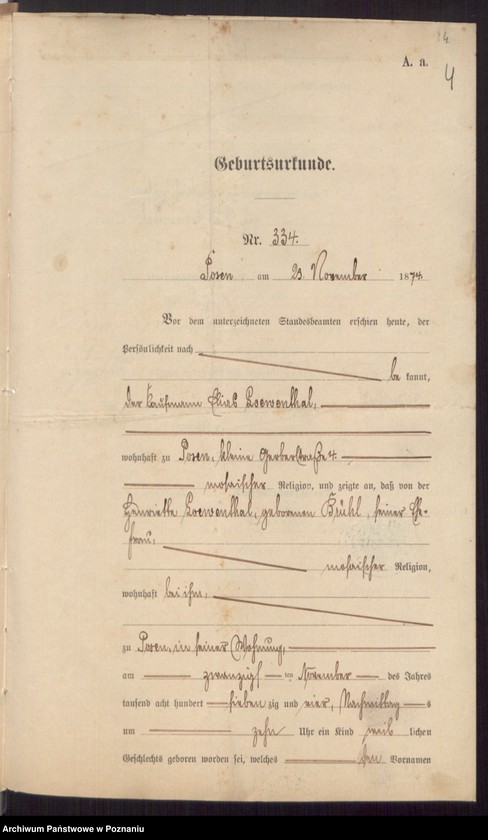 A. a.
4
Geburtsurkunde.
Nr. 334.
Posen am 23. November 1874.
Vor dem unterzeichneten Standesbeamten erschien heute, der
Persönlichkeit nach
be kannt,
der Kaufmann Elias Loewenthal,
wohnhaft zu Posen, kleine Gerberstraße 4.
mosaischer Religion, und zeigte an, daß von der
Henriette Loewenthal, geborenen Brühl, seiner Ehe-
frau,
mosaischer Religion,
wohnhaft bei ihm,
zu Posen, in seiner Wohnung,
am zwanzigs ten November des Jahres
tausend acht hundert sieben zig und vier, Nachmittag s
um zehn Uhr ein Kind weib lichen
Geschlechts geboren worden sei, welches den Vornamen
Archiwum Państwowe w Poznaniu